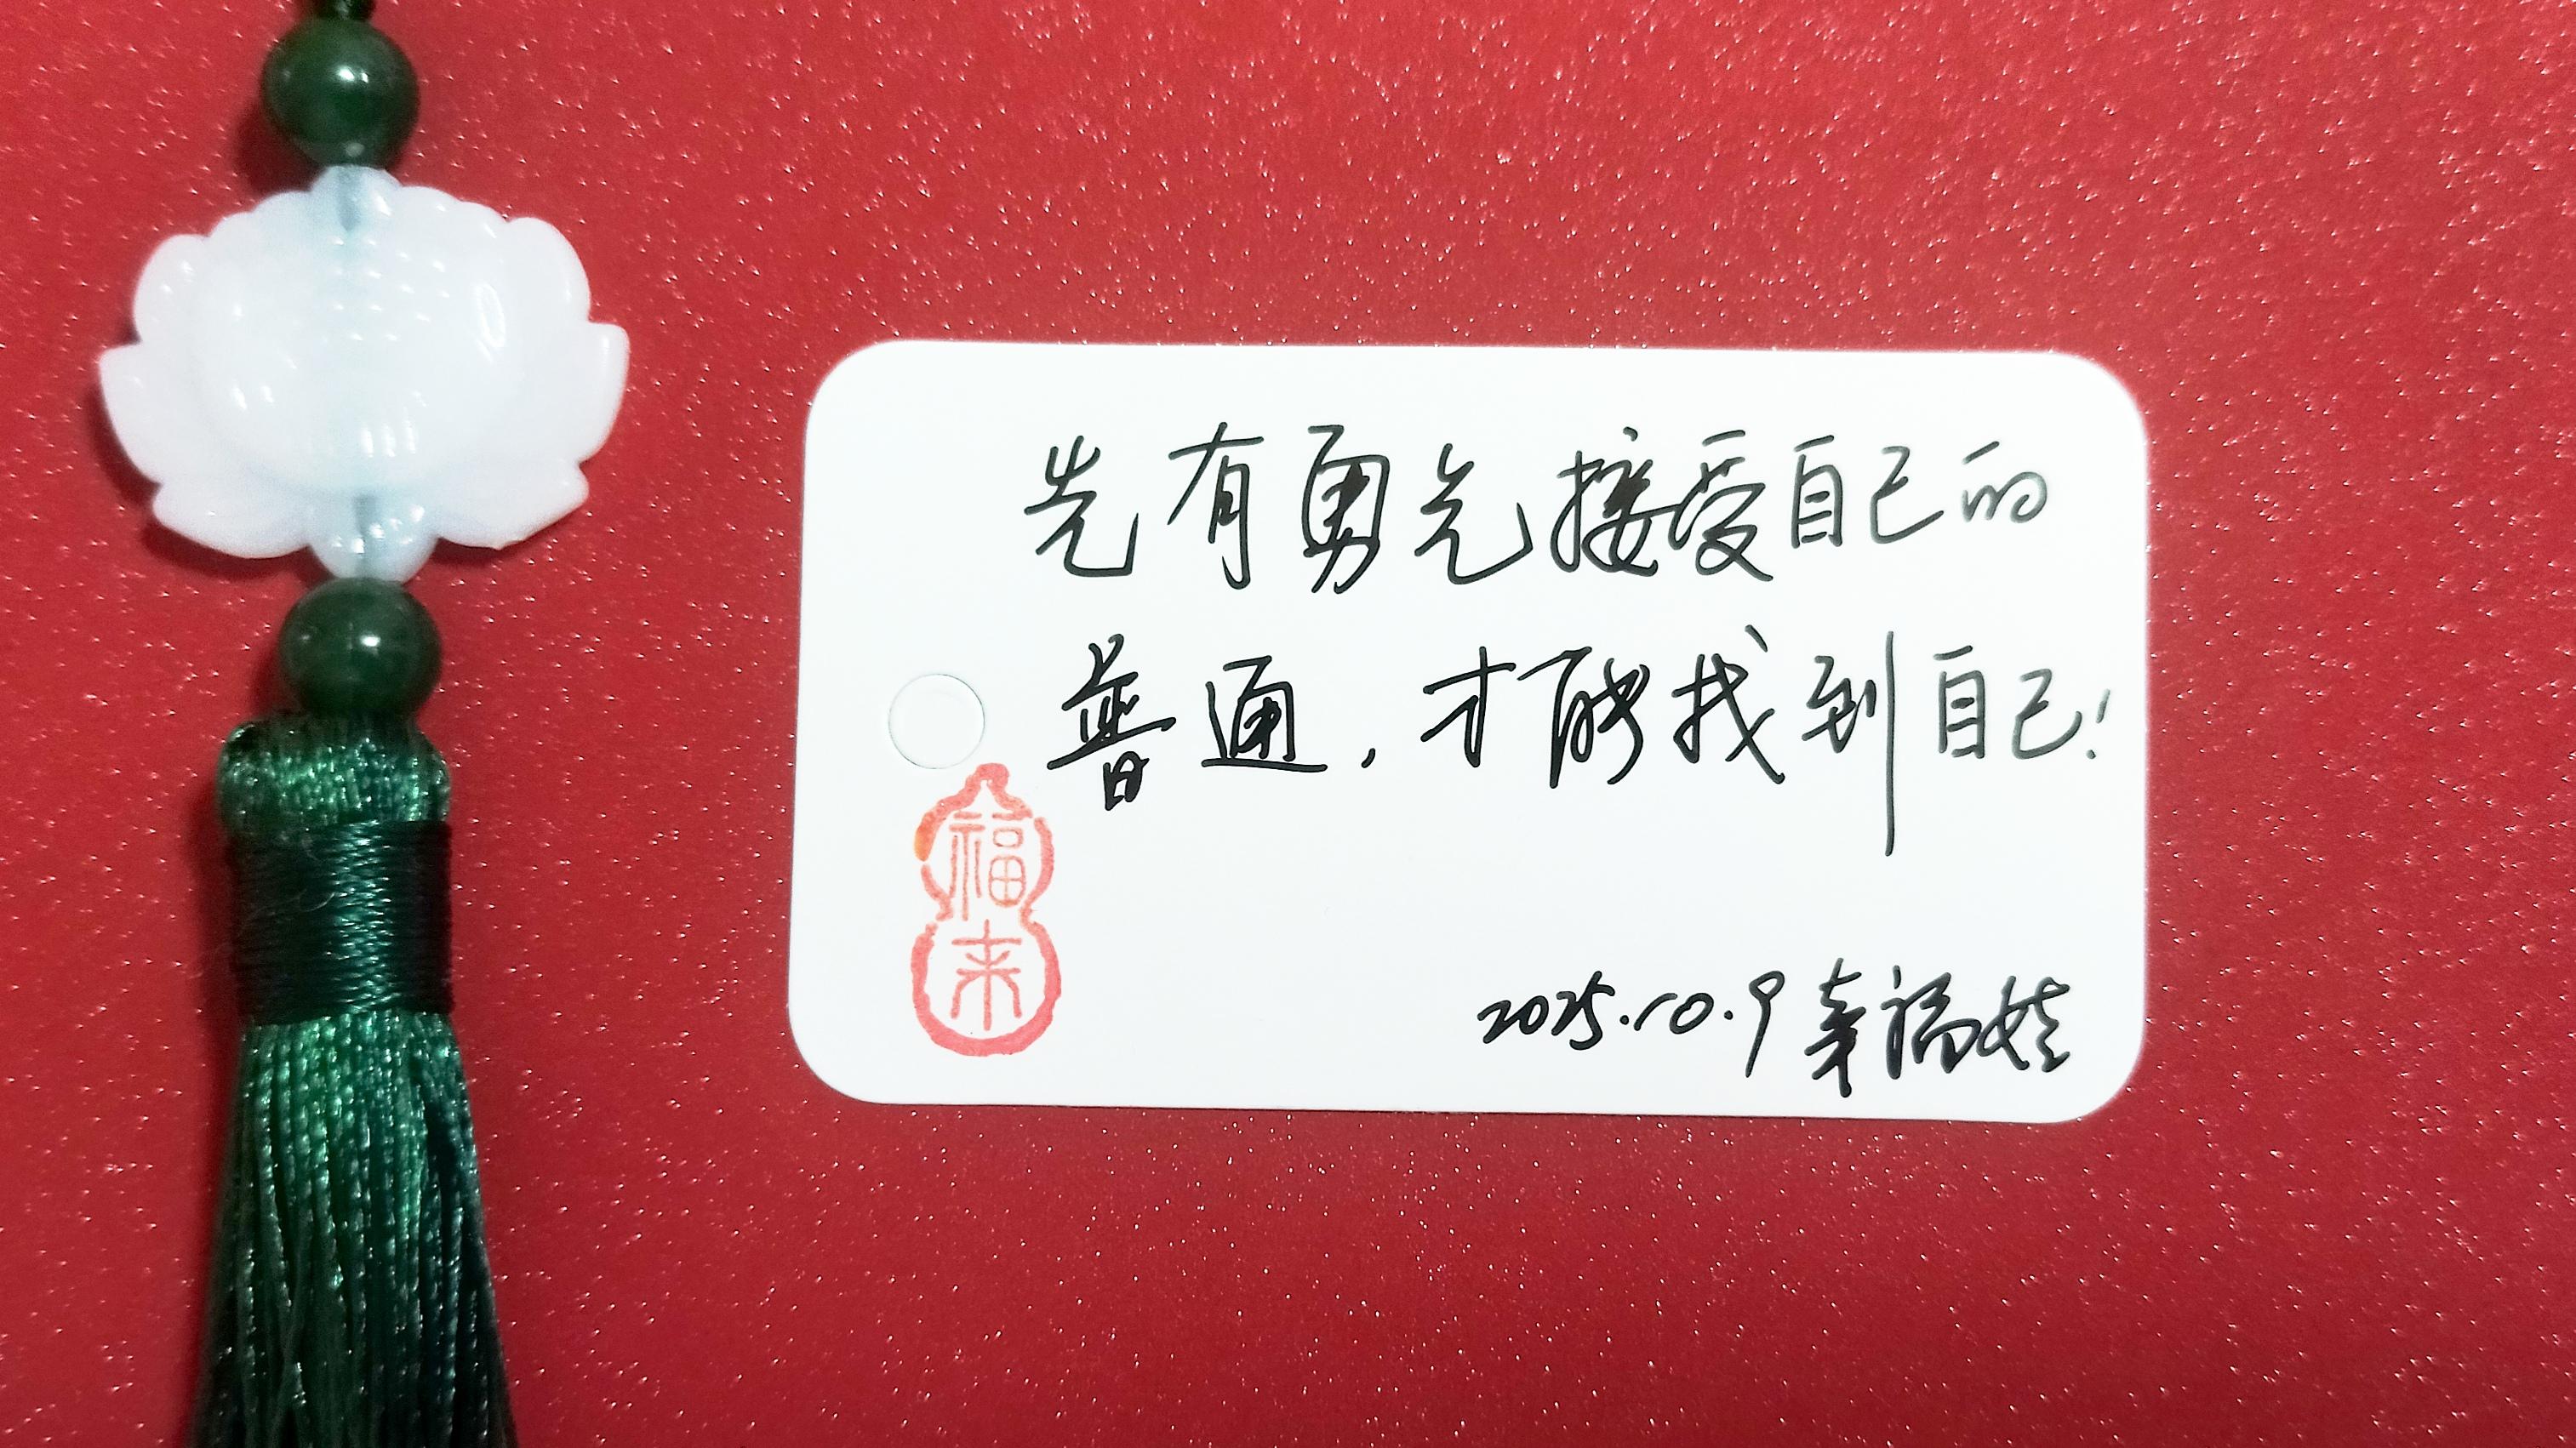 先有勇气接受自己的
普通，才能找到自己！
福来
2025.10.9 幸福娃